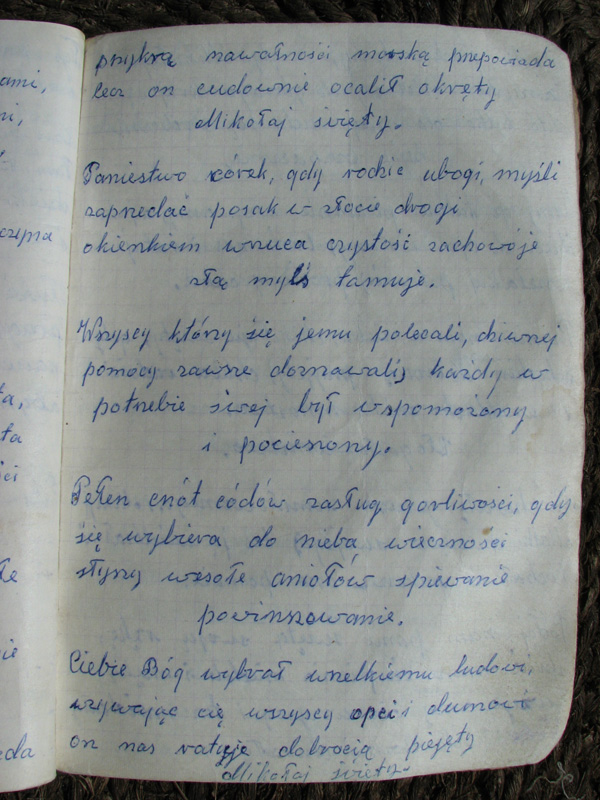 przykrą nawałnością morską przepowiada
lecz on cudownie ocalił okręty
Mikołaj święty.
Paniestwo córek, gdy rodzic ubogi, myśli
zaprzedać posak w złocie drogi
okienkiem wrzuca czystość zachowóje
złą myśl tamuje.
Wszyscy którzy się jemu polecali, dziwnej
pomocy zawsze doznawali, każdy w
potrzebie swej był wspomożony
i pocieszony.
Pełen cnót códów zasług gorliwości, gdy
się wybiera do nieba wieczności
słyszy wesołe aniołów spiewanie
powinszowanie.
Ciebie Bóg wybrał wszelkiemu ludowi,
wzywając cię wszyscy opcii dumowi
on nas ratuje dobrocią pięjęty
Mikołaj święty.
ami,
ni,
czema
ta,
ta
ści
te
nie
eda